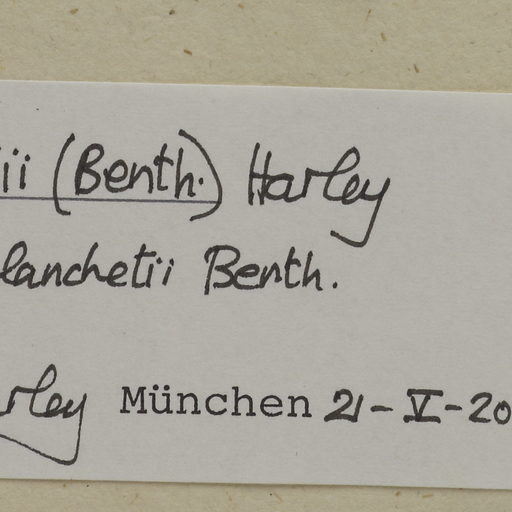 iii (Benth.) Harley
lanchetii Benth.
rley München 21-V-20